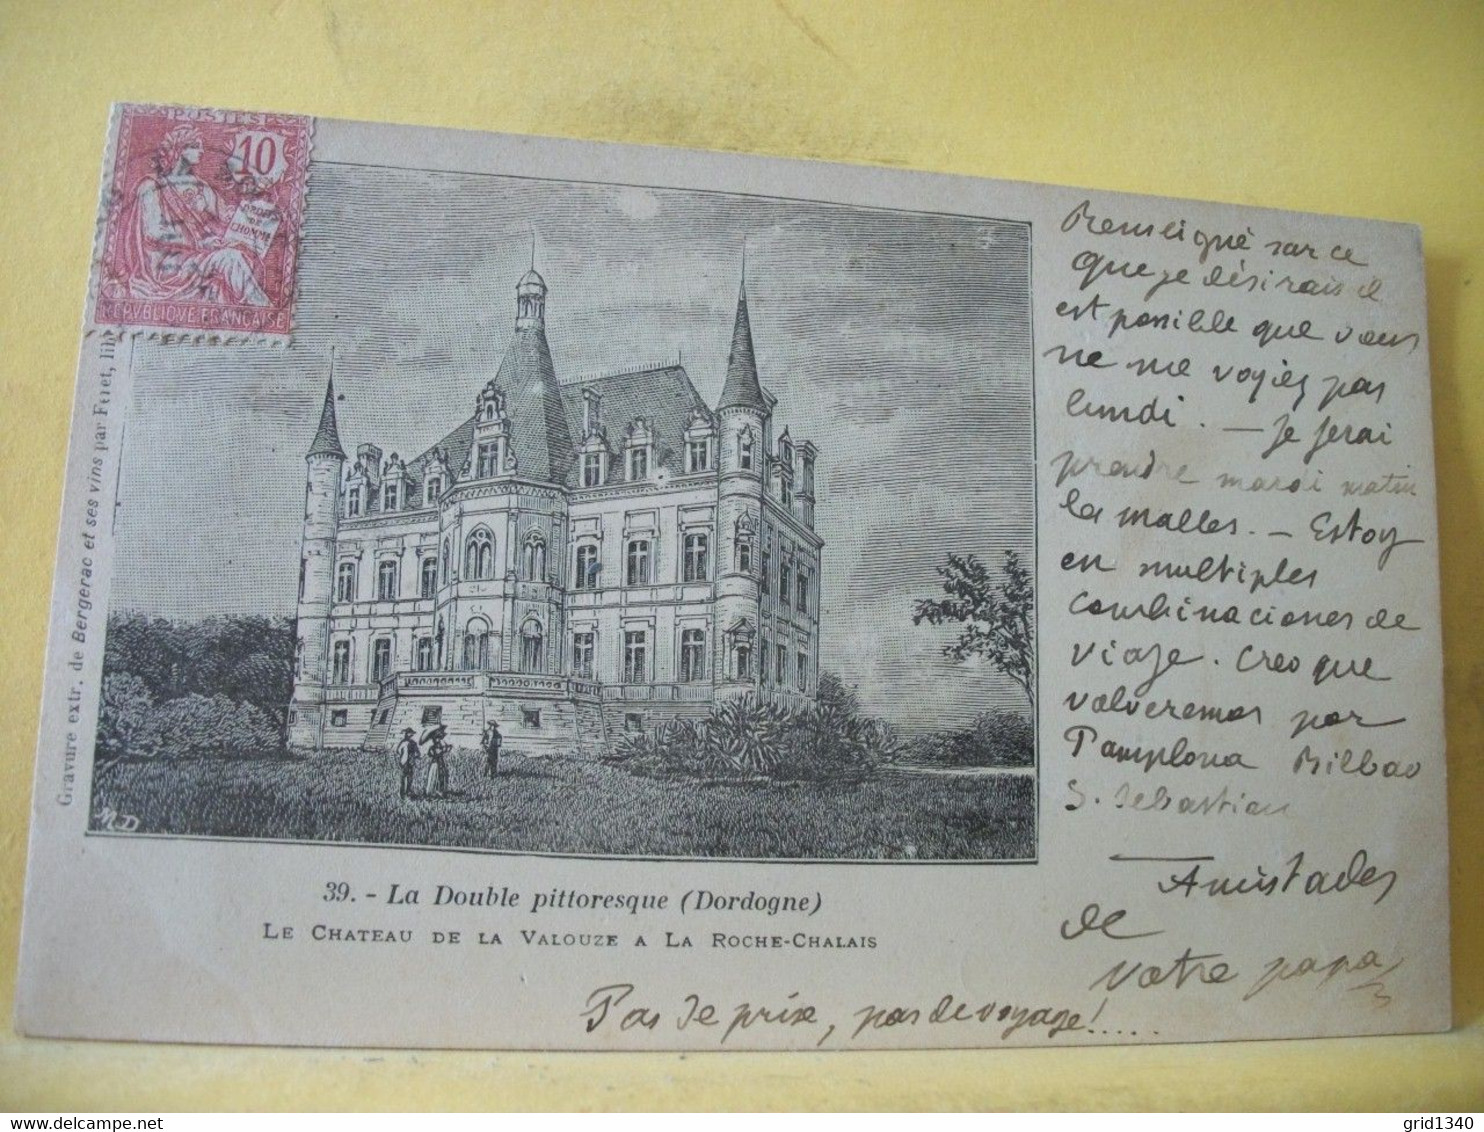 POSTES
10
DROITS
DE
L'HOMME
REPVBLIQVE FRANÇAISE
Gravure extr. de Bergerac et ses vins par Féret, lib
MD
39. - La Double pittoresque (Dordogne)
LE CHATEAU DE LA VALOUZE A LA ROCHE-CHALAIS
Renseigné sur ce
que je désirais il
est possible que vous
ne me voyiez pas
lundi. — Je ferai
prendre mardi matin
les malles. — Estoy
en multiples
combinaciones de
viaje. Creo que
volveremos por
Pamplona Bilbao
S. Sebastian
Amistades
de
votre papa
Pas de prix, pas de voyage!.....
grid1340